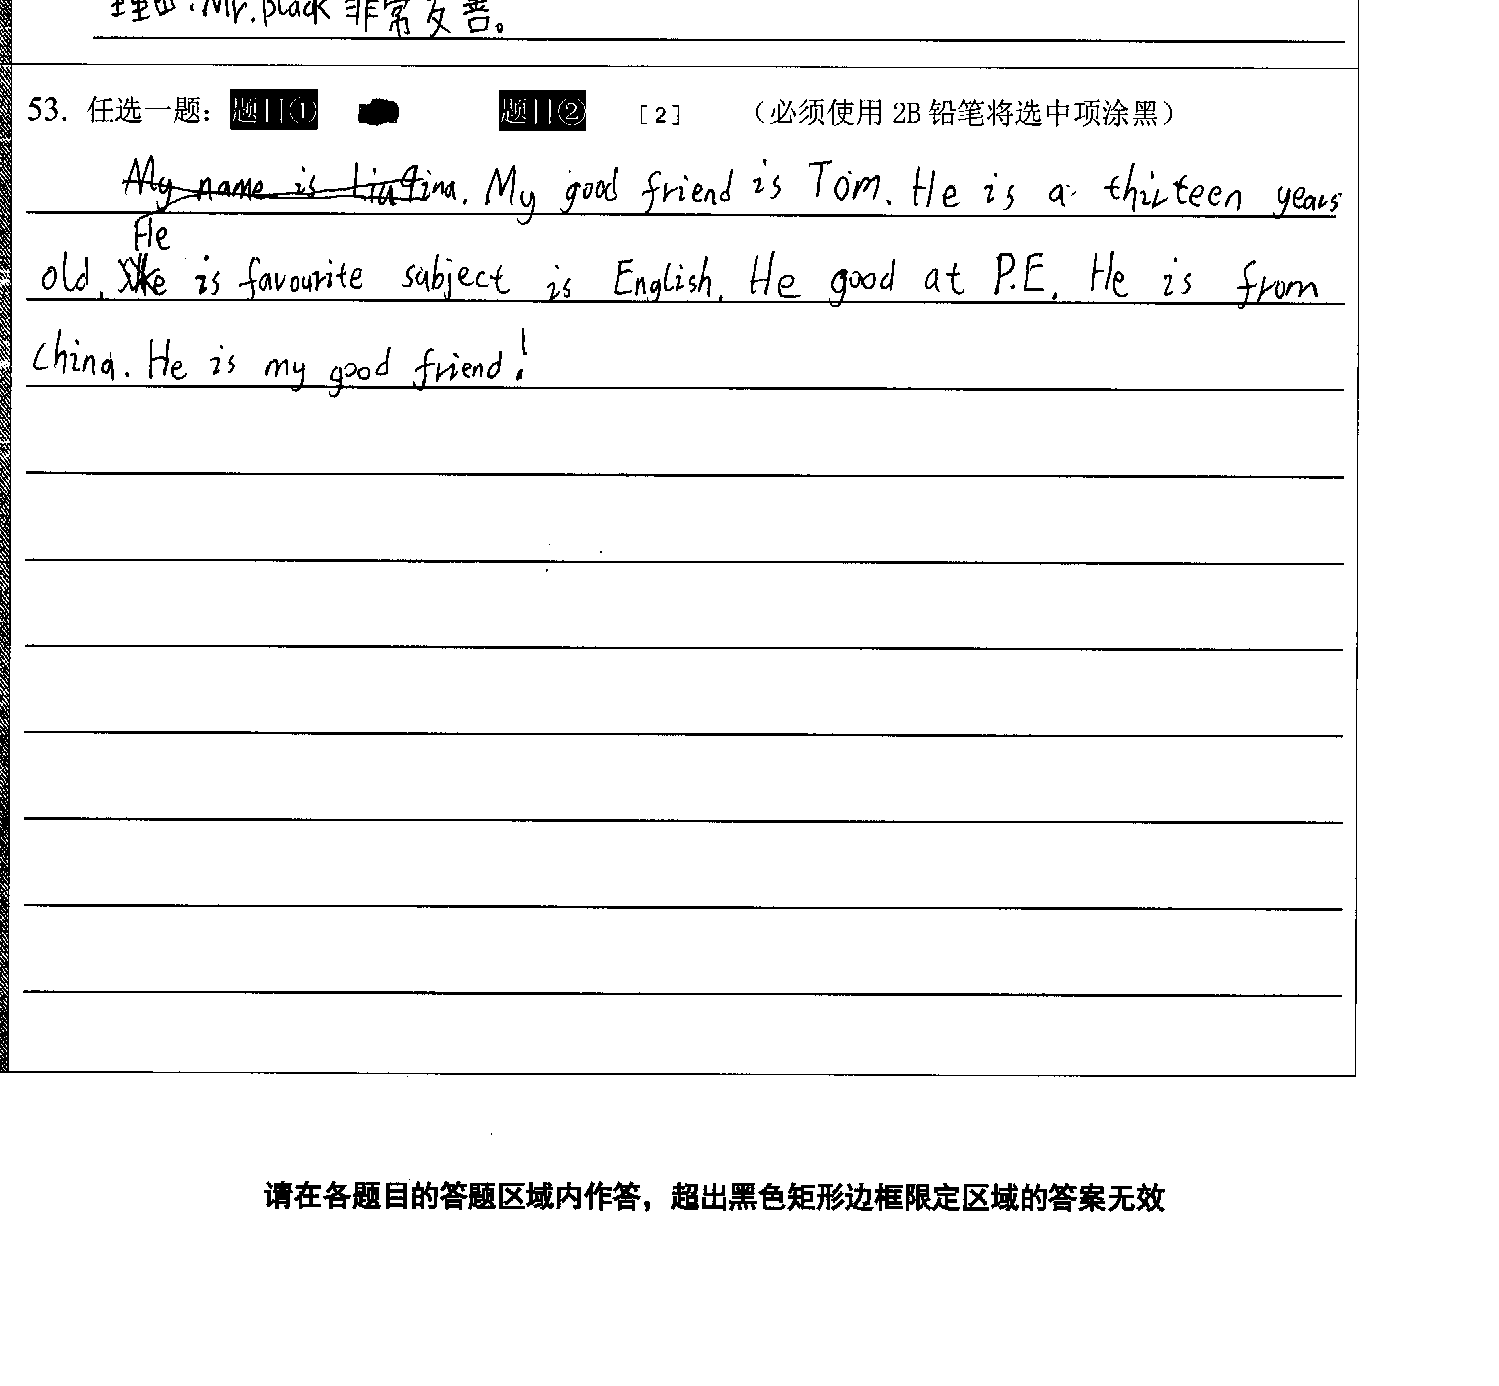 理由:Mr.black 非常友善。
53. 任选一题: 题目① 题目② [2] (必须使用 2B 铅笔将选中项涂黑)
My name is . My good friend is Tom. He is a thirteen years
He
old. is favourite subject is English. He good at P.E. He is from
China. He is my good friend!
请在各题目的答题区域内作答，超出黑色矩形边框限定区域的答案无效